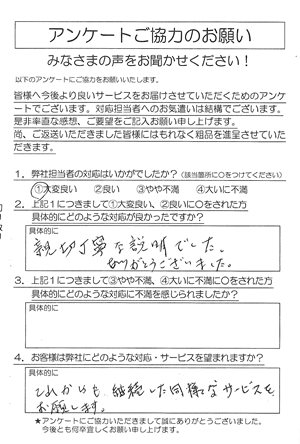 アンケートご協力のお願い
みなさまの声をお聞かせください！
以下のアンケートにご協力をお願いいたします。
皆様へ今後より良いサービスをお届けさせていただくためのアンケ
ートでございます。対応担当者へのお気遣いは結構でございます。
是非率直な感想、ご要望をご記入お願い申し上げます。
尚、ご返送いただきました皆様にはもれなく粗品を進呈させていた
だきます。
1．弊社担当者の対応はいかがでしたか？（該当箇所に○をつけてください）
①大変良い　②良い　③やや不満　④大いに不満
2．上記１につきまして①大変良い、②良いに○をされた方
具体的にどのような対応が良かったですか？
具体的に
親切丁寧な説明でした。
ありがとうございました。
3．上記１につきまして③やや不満、④大いに不満に○をされた方
具体的にどのような対応に不満を感じられましたか？
具体的に
4．お客様は弊社にどのような対応・サービスを望まれますか？
具体的に
これからも 継続した同様なサービスを
お願いします。
★アンケートにご協力いただきまして誠にありがとうございました。
今後とも何卒宜しくお願い申し上げます。